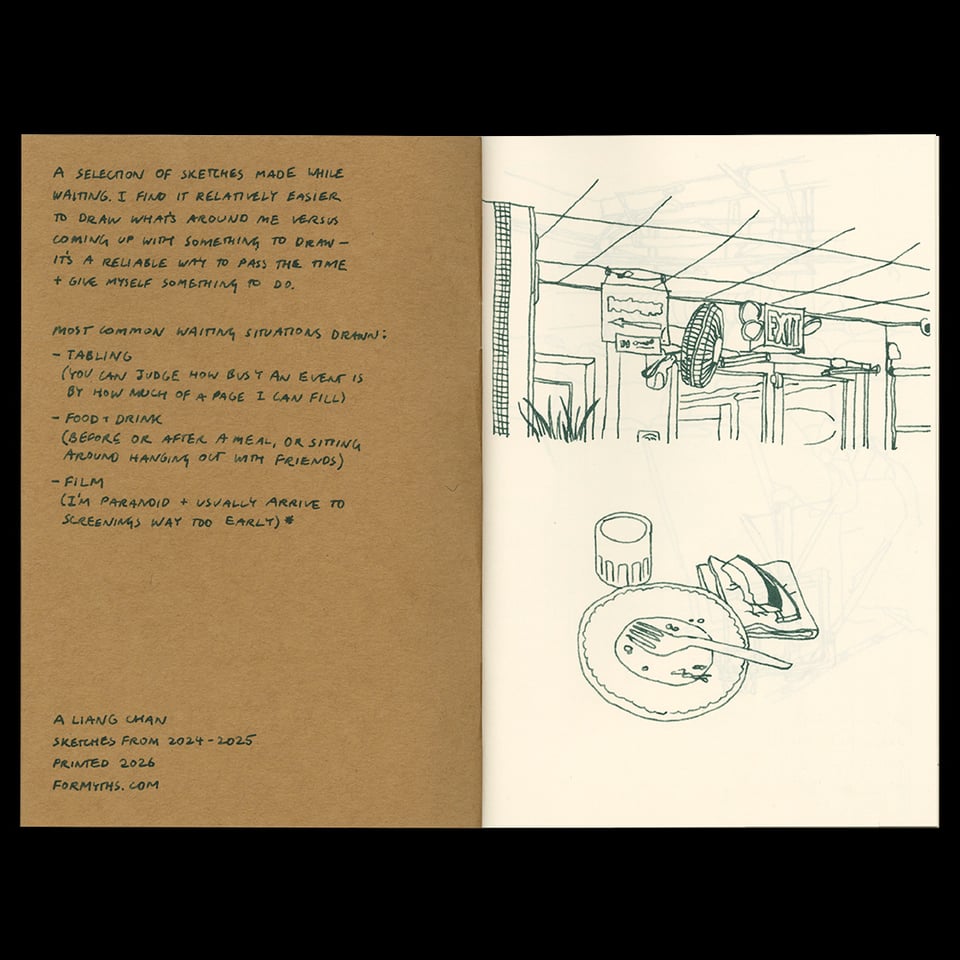 A SELECTION OF SKETCHES MADE WHILE
WAITING. I FIND IT RELATIVELY EASIER
TO DRAW WHAT'S AROUND ME VERSUS
COMING UP WITH SOMETHING TO DRAW—
IT'S A RELIABLE WAY TO PASS THE TIME
+ GIVE MYSELF SOMETHING TO DO.
MOST COMMON WAITING SITUATIONS DRAWN:
- TABLING
(YOU CAN JUDGE HOW BUSY AN EVENT IS
BY HOW MUCH OF A PAGE I CAN FILL)
- FOOD + DRINK
(BEFORE OR AFTER A MEAL, OR SITTING
AROUND HANGING OUT WITH FRIENDS)
- FILM
(I'M PARANOID + USUALLY ARRIVE TO
SCREENINGS WAY TOO EARLY)*
A LIANG CHAN
SKETCHES FROM 2024-2025
PRINTED 2026
FORMYTHS.COM
EXIT